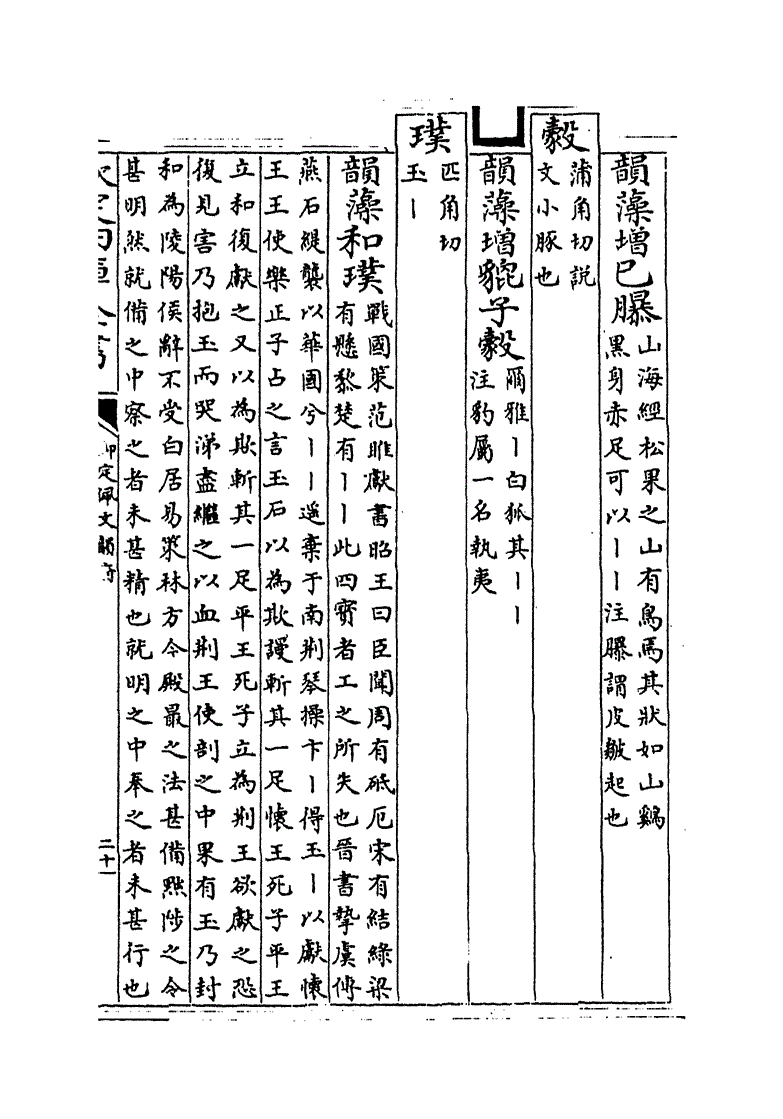 韻藻增已㿺山海經松果之山有鳥焉其狀如山鷄
黑身赤足可以丨丨注㿺謂皮皴起也
㲉蒲角切説
文小豚也
韻藻增貔子㲉爾雅丨白狐其丨丨
注豹屬一名執夷
璞匹角切
玉丨
韻藻和璞戰國策范睢獻書昭王曰臣聞周有砥厄宋有結綠梁
有懸黎楚有丨丨此四寳者工之所失也晉書摯虞傳
燕石緹襲以華國兮丨丨遥棄于南荆琴操卞丨得玉丨以獻懷
王王使樂正子占之言玉石以為欺謾斬其一足懷王死子平王
立和復獻之又以為欺斬其一足平王死子立為荆王欲獻之恐
復見害乃抱玉而哭涕盡繼之以血荆王使剖之中果有玉乃封
和為陵陽侯辭不受白居易策林方今殿最之法甚備黜陟之令
甚明然就備之中察之者未甚精也就明之中奉之者未甚行也
欽定四庫全書
御定佩文韻府
二十一